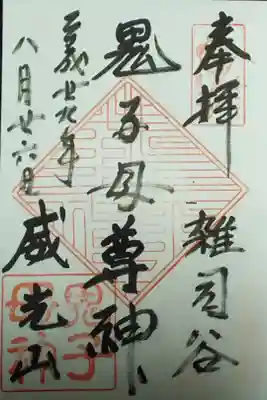 奉拝
雑司谷
鬼子母尊神
威光山
八月廿六日
鬼子
母神